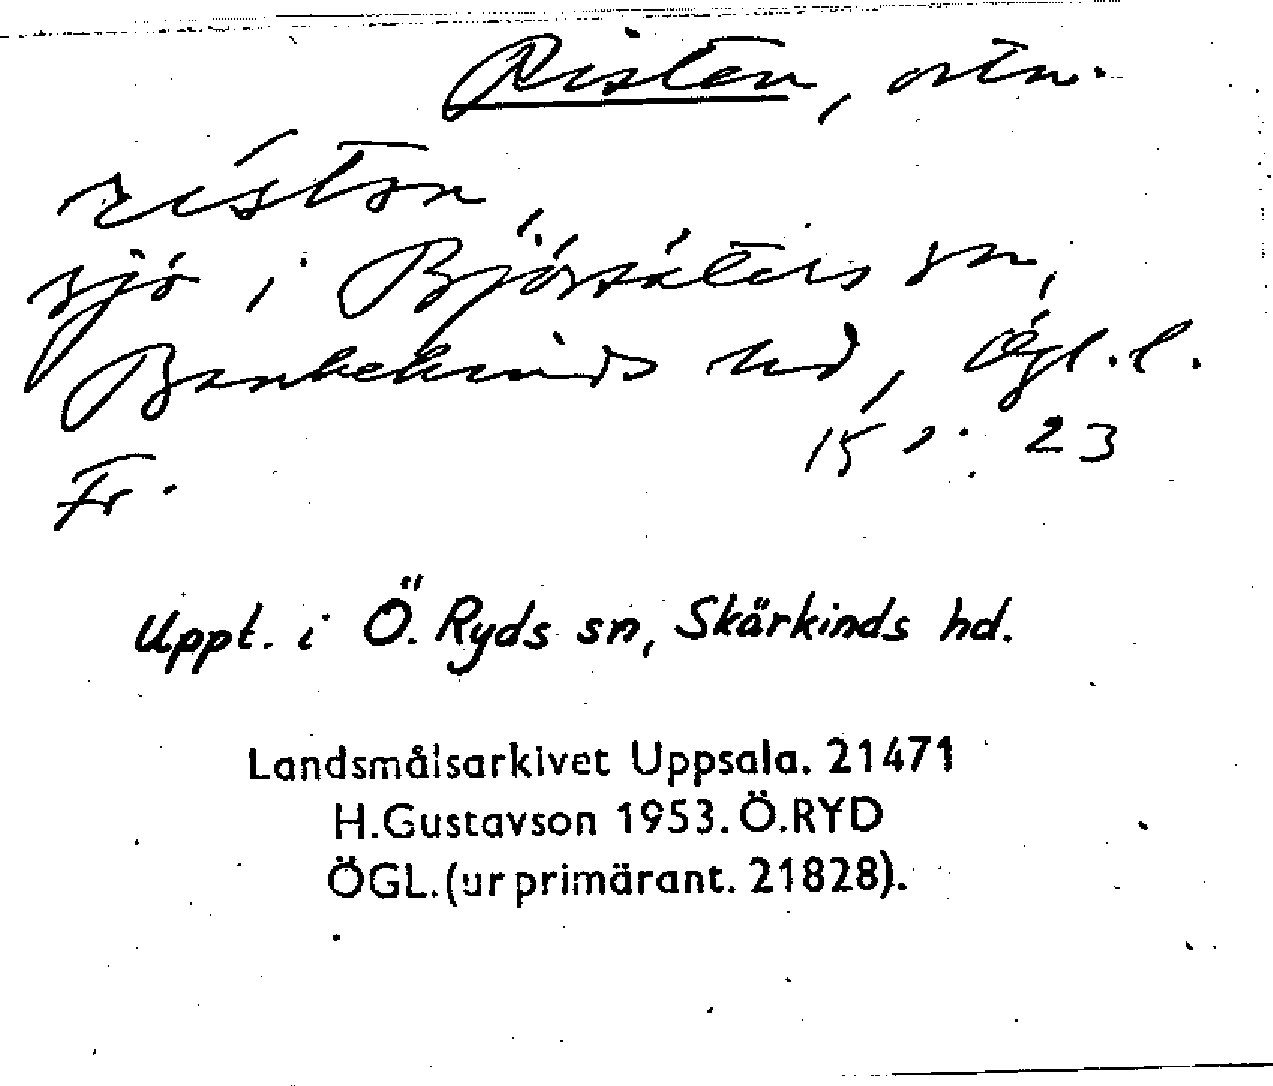 Risten, ortn.
ristən,
sjö i Björsäters sn,
Bankekinds hd, Ögl. l.
15 23
Fr.
Uppt. i Ö. Ryds sn, Skärkinds hd.
Landsmålsarkivet Uppsala. 21471
H.Gustavson 1953. Ö.RYD
ÖGL.(ur primärant. 21828).